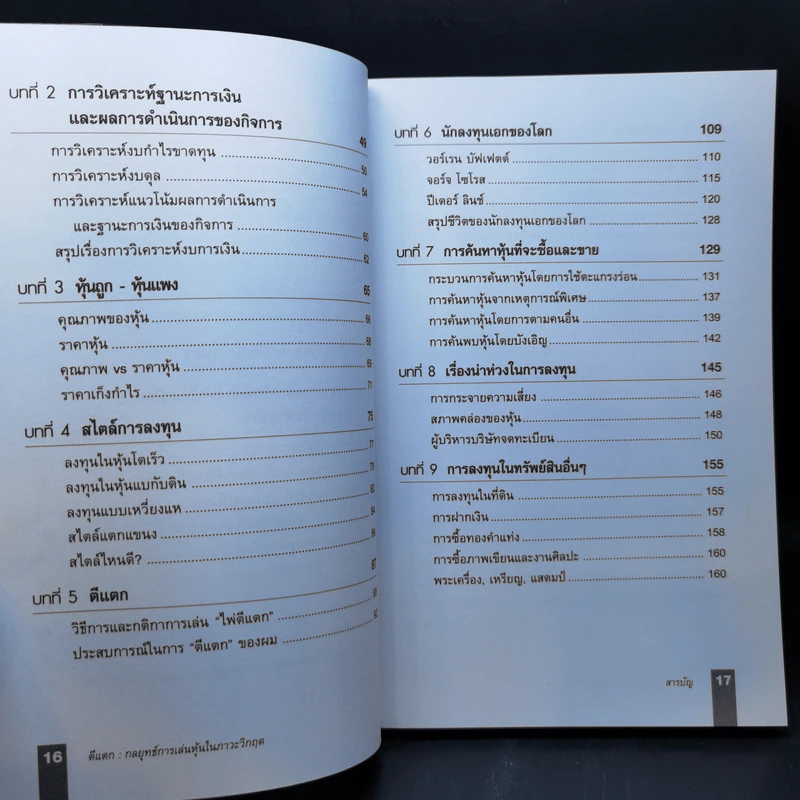 บทที่ 2 การวิเคราะห์ฐานะการเงิน
และผลการดำเนินการของกิจการ 49
การวิเคราะห์งบกำไรขาดทุน 50
การวิเคราะห์งบดุล 54
การวิเคราะห์แนวโน้มผลการดำเนินการ
และฐานะการเงินของกิจการ 60
สรุปเรื่องการวิเคราะห์งบการเงิน 62
บทที่ 3 หุ้นถูก - หุ้นแพง 65
คุณภาพของหุ้น 66
ราคาหุ้น 68
คุณภาพ vs ราคาหุ้น 69
ราคาเก็งกำไร 71
บทที่ 4 สไตล์การลงทุน 75
ลงทุนในหุ้นโตเร็ว 77
ลงทุนในหุ้นแบกับดิน 79
ลงทุนแบบเหวี่ยงแห 82
สไตล์แตกแขนง 84
สไตล์ไหนดี? 86
บทที่ 5 ตีแตก 87
วิธีการและกติกาการเล่น "ไพ่ตีแตก"
ประสบการณ์ในการ "ตีแตก" ของผม
16 ตีแตก : กลยุทธ์การเล่นหุ้นในภาวะวิกฤต
บทที่ 6 นักลงทุนเอกของโลก 109
วอร์เรน บัฟเฟตต์ 110
จอร์จ โซโรส 115
ปีเตอร์ ลินช์ 120
สรุปชีวิตของนักลงทุนเอกของโลก 128
บทที่ 7 การค้นหาหุ้นที่จะซื้อและขาย 129
กระบวนการค้นหาหุ้นโดยการใช้ตะแกรงร่อน 131
การค้นหาหุ้นจากเหตุการณ์พิเศษ 137
การค้นหาหุ้นโดยการตามคนอื่น 139
การค้นพบหุ้นโดยบังเอิญ 142
บทที่ 8 เรื่องน่าห่วงในการลงทุน 145
การกระจายความเสี่ยง 146
สภาพคล่องของหุ้น 148
ผู้บริหารบริษัทจดทะเบียน 150
บทที่ 9 การลงทุนในทรัพย์สินอื่นๆ 155
การลงทุนในที่ดิน 155
การฝากเงิน 157
การซื้อทองคำแท่ง 158
การซื้อภาพเขียนและงานศิลปะ 160
พระเครื่อง, เหรียญ, แสตมป์ 160
สารบัญ 17